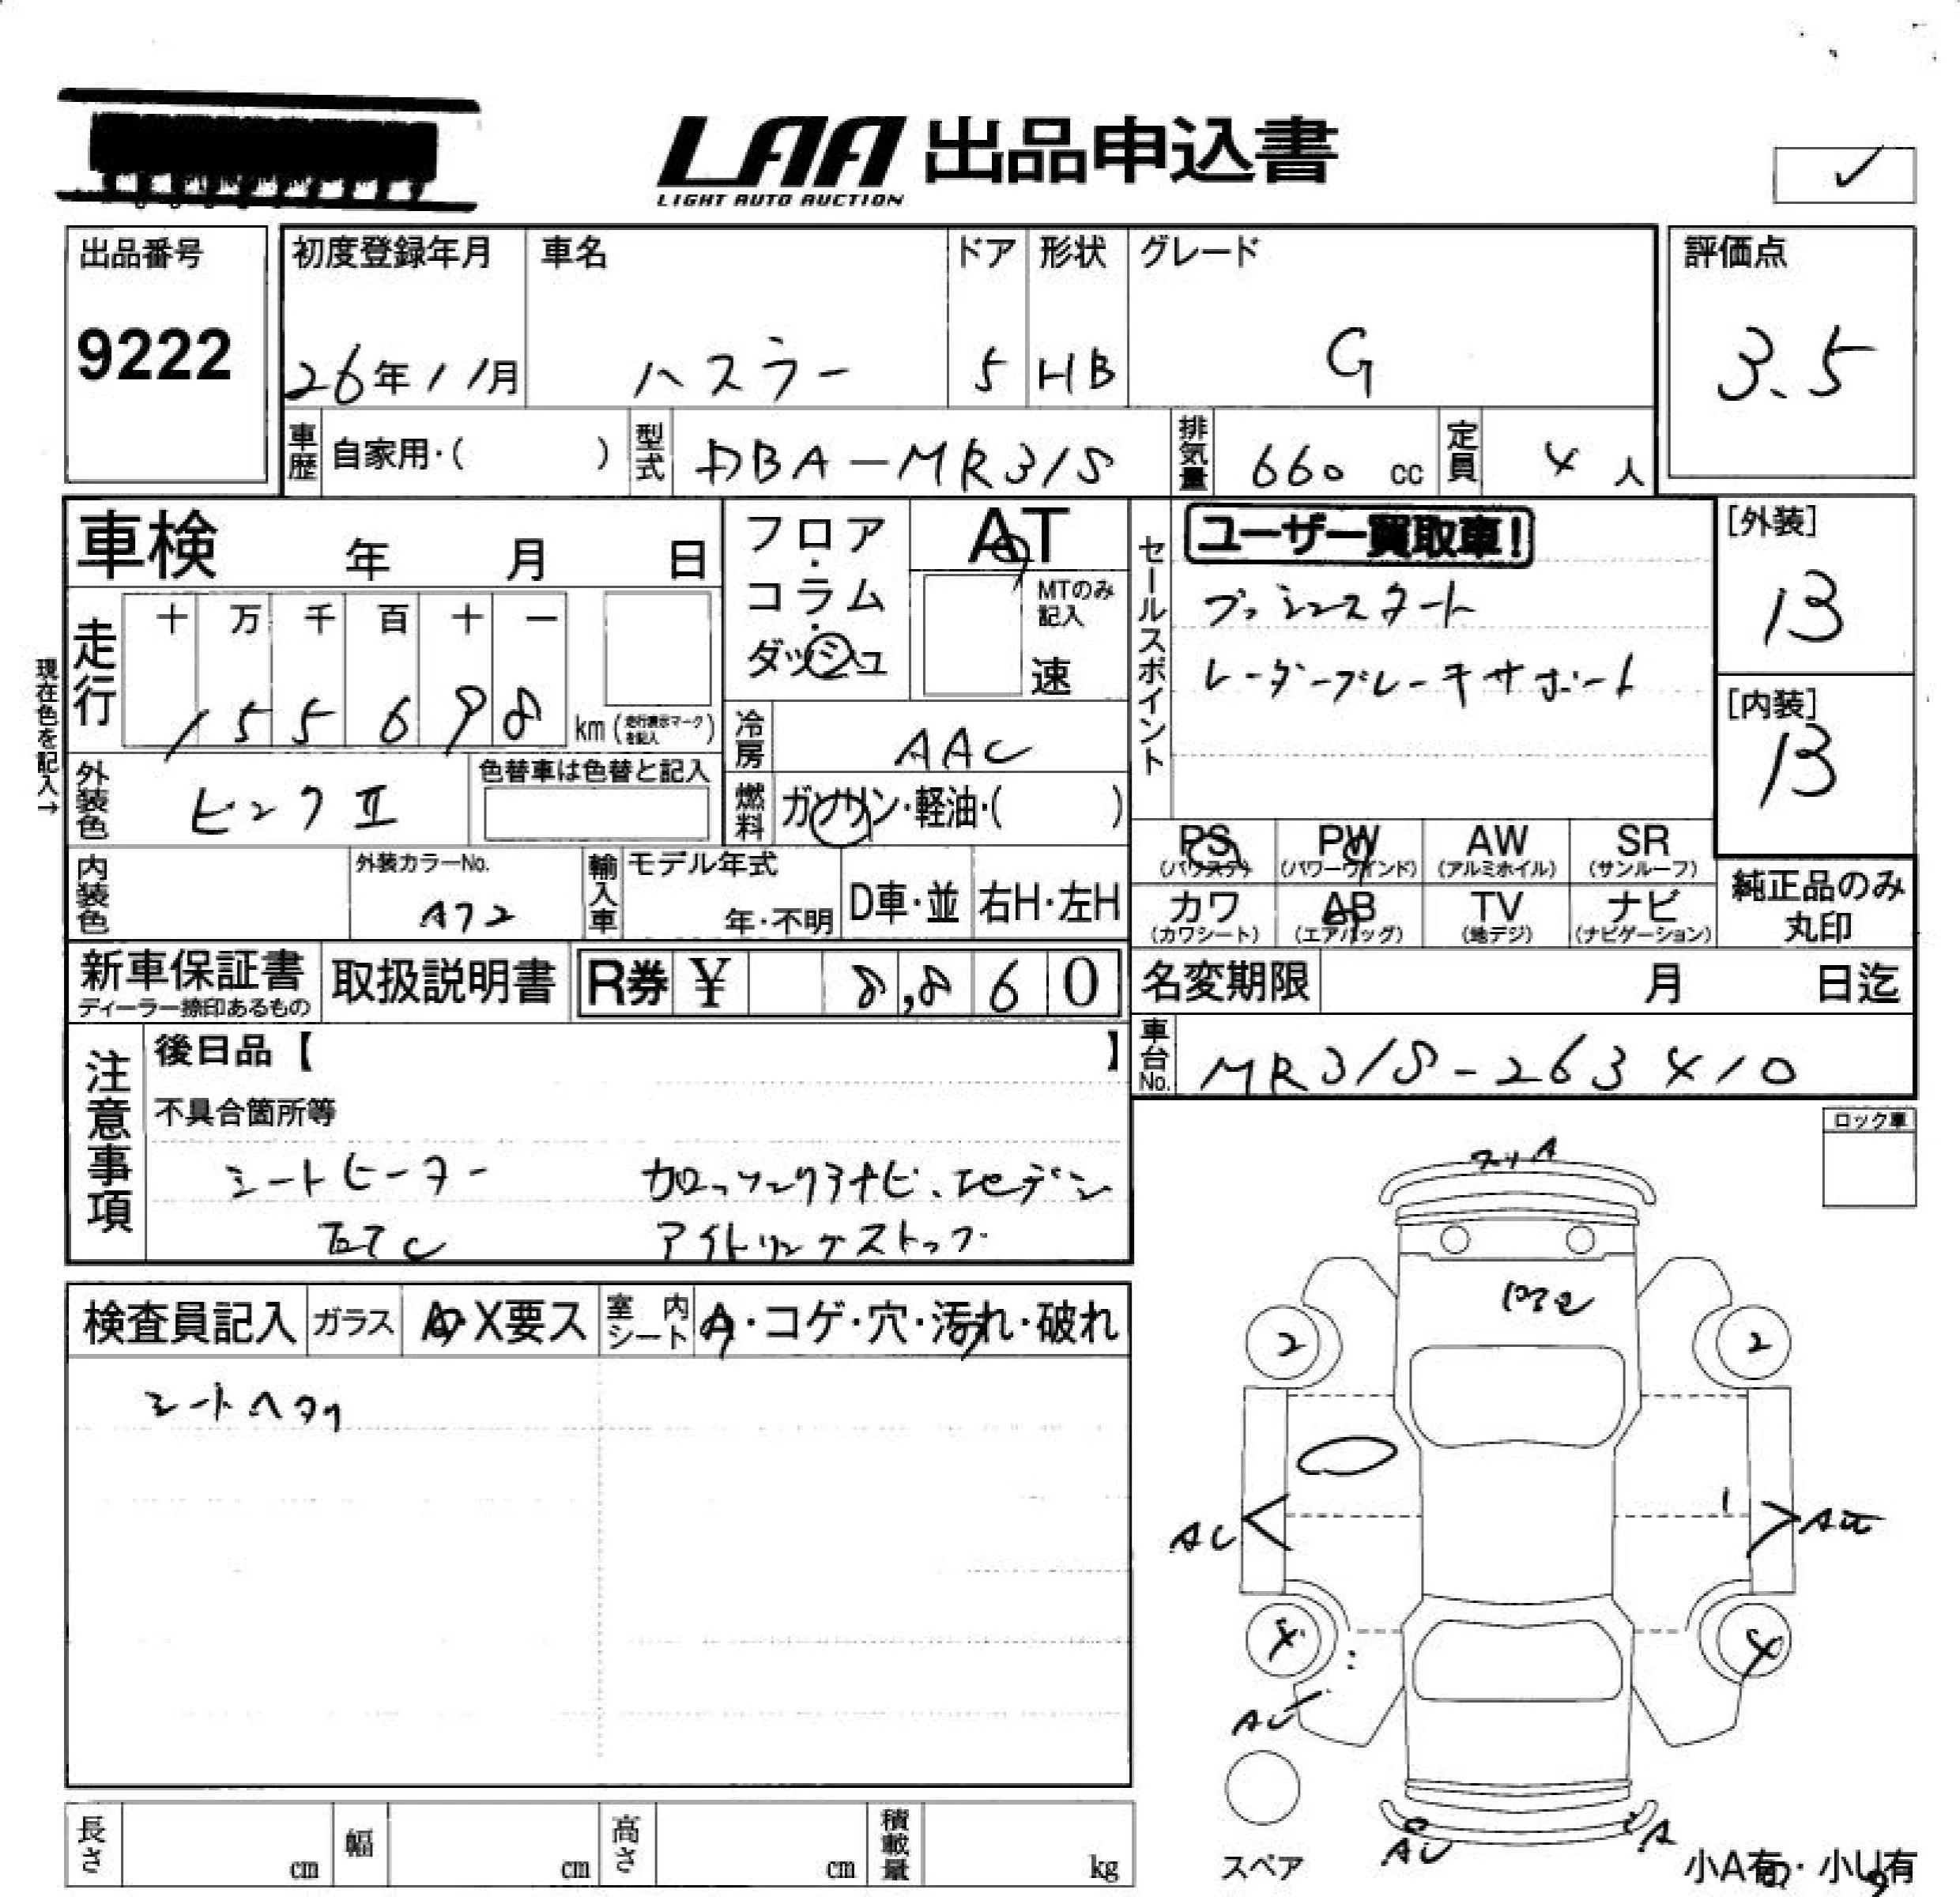 LAA 出品申込書
LIGHT AUTO AUCTION
✓
出品番号
9222
初度登録年月
26年11月
車名
ハスラー
ドア
5
形状
HB
グレード
G
評価点
3.5
車歴 自家用・( )
型式 DBA-MR31S
排気量 660 cc
定員 4人
車検 年 月 日
フロア・コラム・ダッシュ
AT
MTのみ記入
速
セールスポイント
ユーザー買取車!
プッシュスタート
レーダーブレーキサポート
[外装]
B
[内装]
B
現在色を記入→
走行 十 万 千 百 十 一
155698 km (走行表示マークを記入)
冷房 AAC
外装色 ピンクII
色替車は色替と記入
燃料 ガソリン・軽油・( )
PS
(パワステ)
PW
(パワーウインド)
AW
(アルミホイル)
SR
(サンルーフ)
カワ
(カワシート)
AB
(エアバッグ)
TV
(地デジ)
ナビ
(ナビゲーション)
純正品のみ丸印
内装色
外装カラーNo.
A72
輸入車 モデル年式
年・不明
D車・並
右H・左H
新車保証書
ディーラー捺印あるもの
取扱説明書
R券 ¥ 8,860
名変期限 月 日迄
車台No. MR31S-263410
注意事項
後日品【 】
不具合箇所等
シートヒーター
ETC
アイドリングストップ
ロック車
検査員記入
ガラス A・X要ス
室内シート A・コゲ・穴・汚れ・破れ
シートヘタリ
A
2
2
AU
4
4
AU
AU
A
スペア
小A有・小U有
長さ cm
幅 cm
高さ cm
積載量 kg